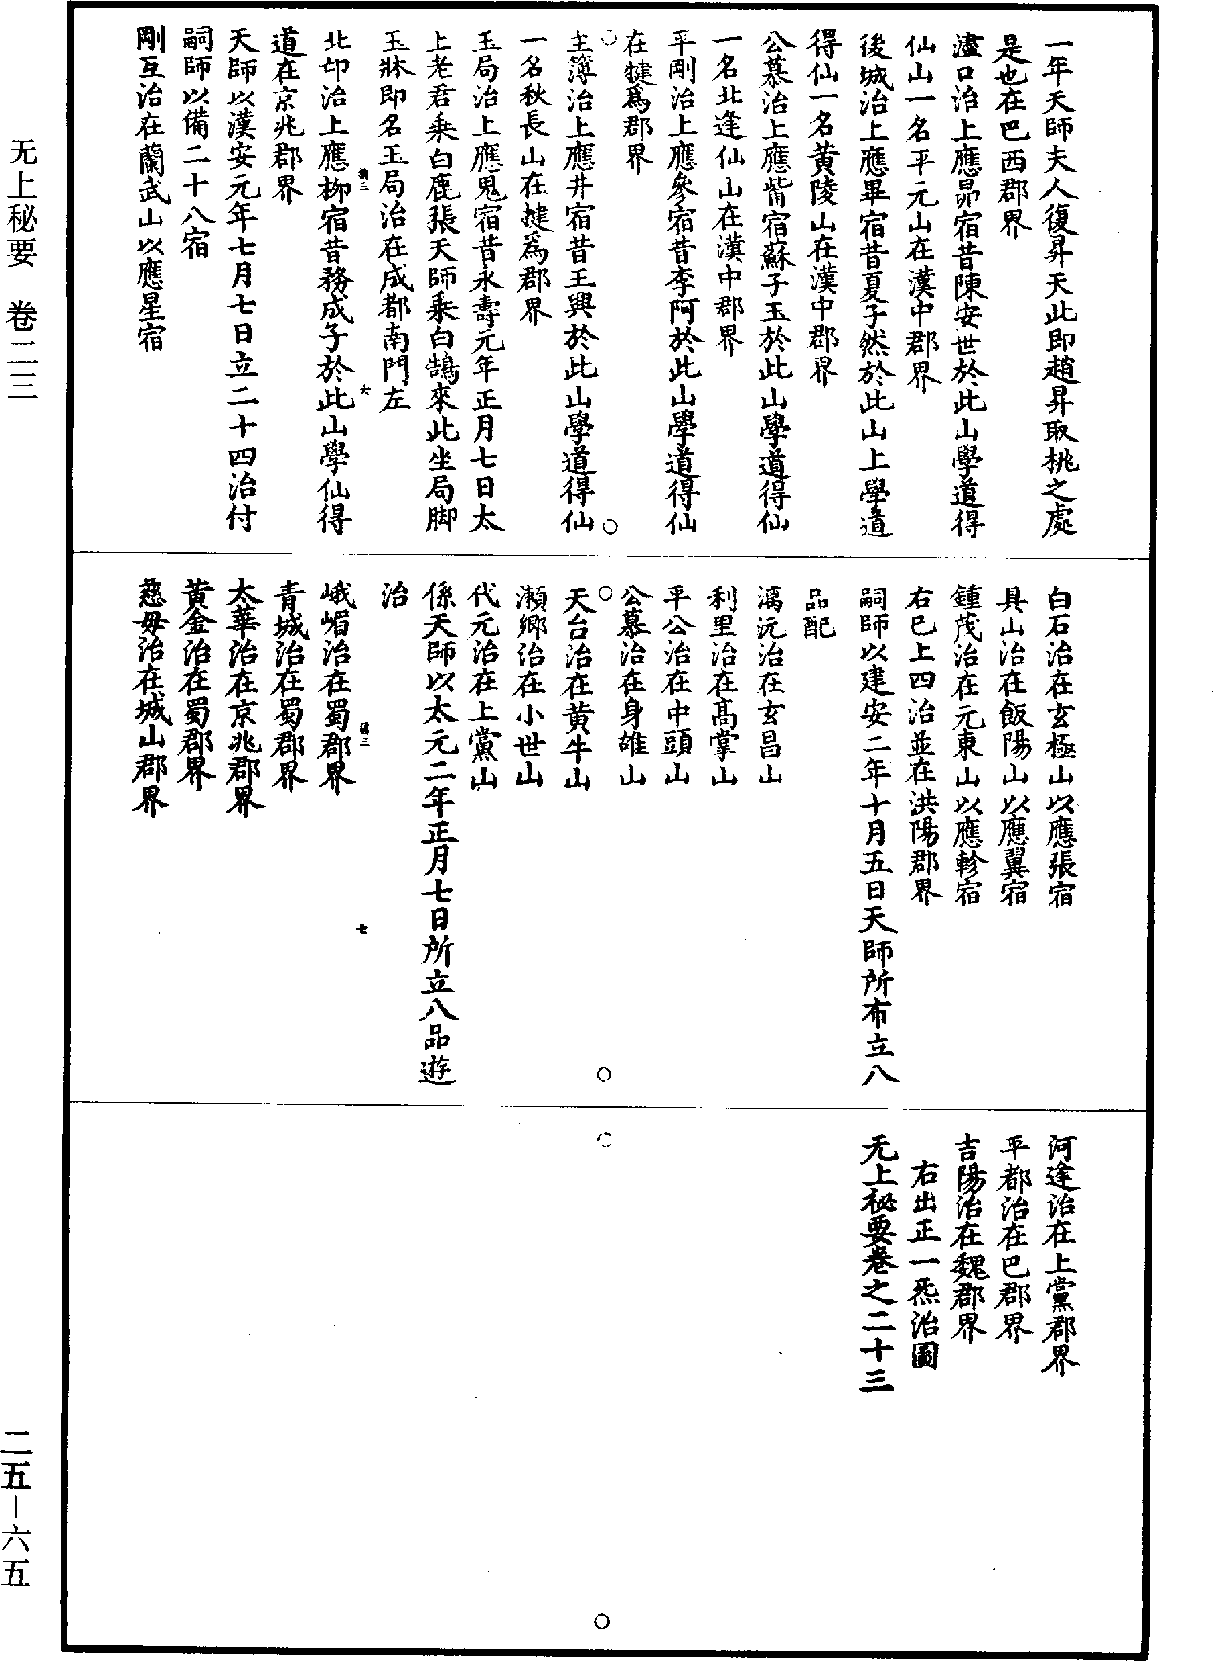 一年天師夫人復昇天此即趙昇取桃之處
是也在巴西郡界
濜口治上應昴宿昔陳安世於此山學道得
仙山一名平元山在漢中郡界
後城治上應畢宿昔夏子然於此山上學道
得仙一名黃陵山在漢中郡界
公慕治上應觜宿蘇子玉於此山學道得仙
一名北逢仙山在漢中郡界
平剛治上應參宿昔李阿於此山學道得仙
在犍為郡界
主簿治上應井宿昔王興於此山學道得仙
一名秋長山在犍為郡界
玉局治上應鬼宿昔永壽元年正月七日太
上老君乘白鹿張天師乘白鶴來此坐局脚
玉牀即名玉局治在成都南門左
北邙治上應柳宿昔務成子於此山學仙得
道在京兆郡界
天師以漢安元年七月七日立二十四治付
嗣師以備二十八宿
剛互治在蘭武山以應星宿
白石治在玄極山以應張宿
具山治在飯陽山以應翼宿
鍾茂治在元東山以應軫宿
右已上四治並在洪陽郡界
嗣師以建安二年十月五日天師所布立八
品配
漓沅治在玄昌山
利里治在高掌山
平公治在中頭山
公慕治在身雄山
天台治在黃牛山
瀨鄉治在小世山
代元治在上黨山
係天師以太元二年正月七日所立八品遊
治
峨嵋治在蜀郡界
青城治在蜀郡界
太華治在京兆郡界
黃金治在蜀郡界
慈母治在城山郡界
河逢治在上黨郡界
平都治在巴郡界
吉陽治在魏郡界
右出正一炁治圖
无上祕要卷之二十三
六
七
无上秘要 卷二三
二五—六五